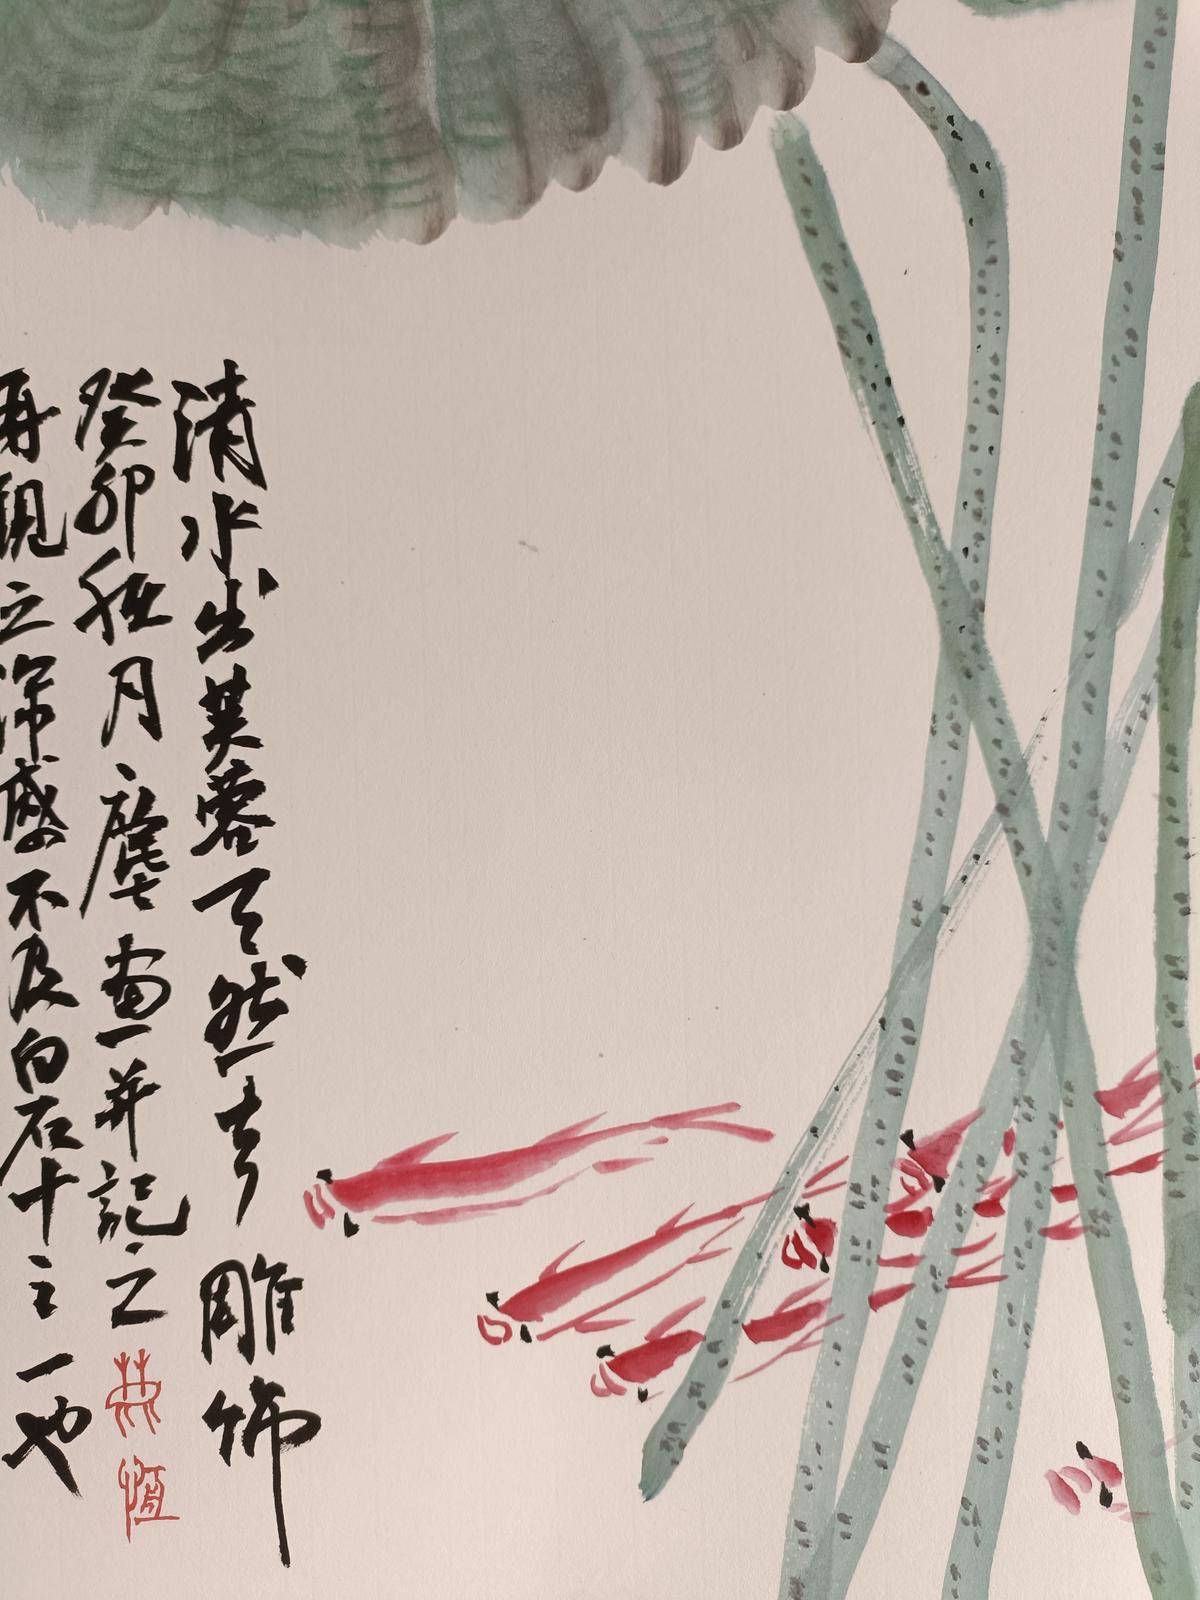 清水出芙蓉天然去雕饰
癸卯秋月塵畫并記之
再觀之深感不及白石十之一也